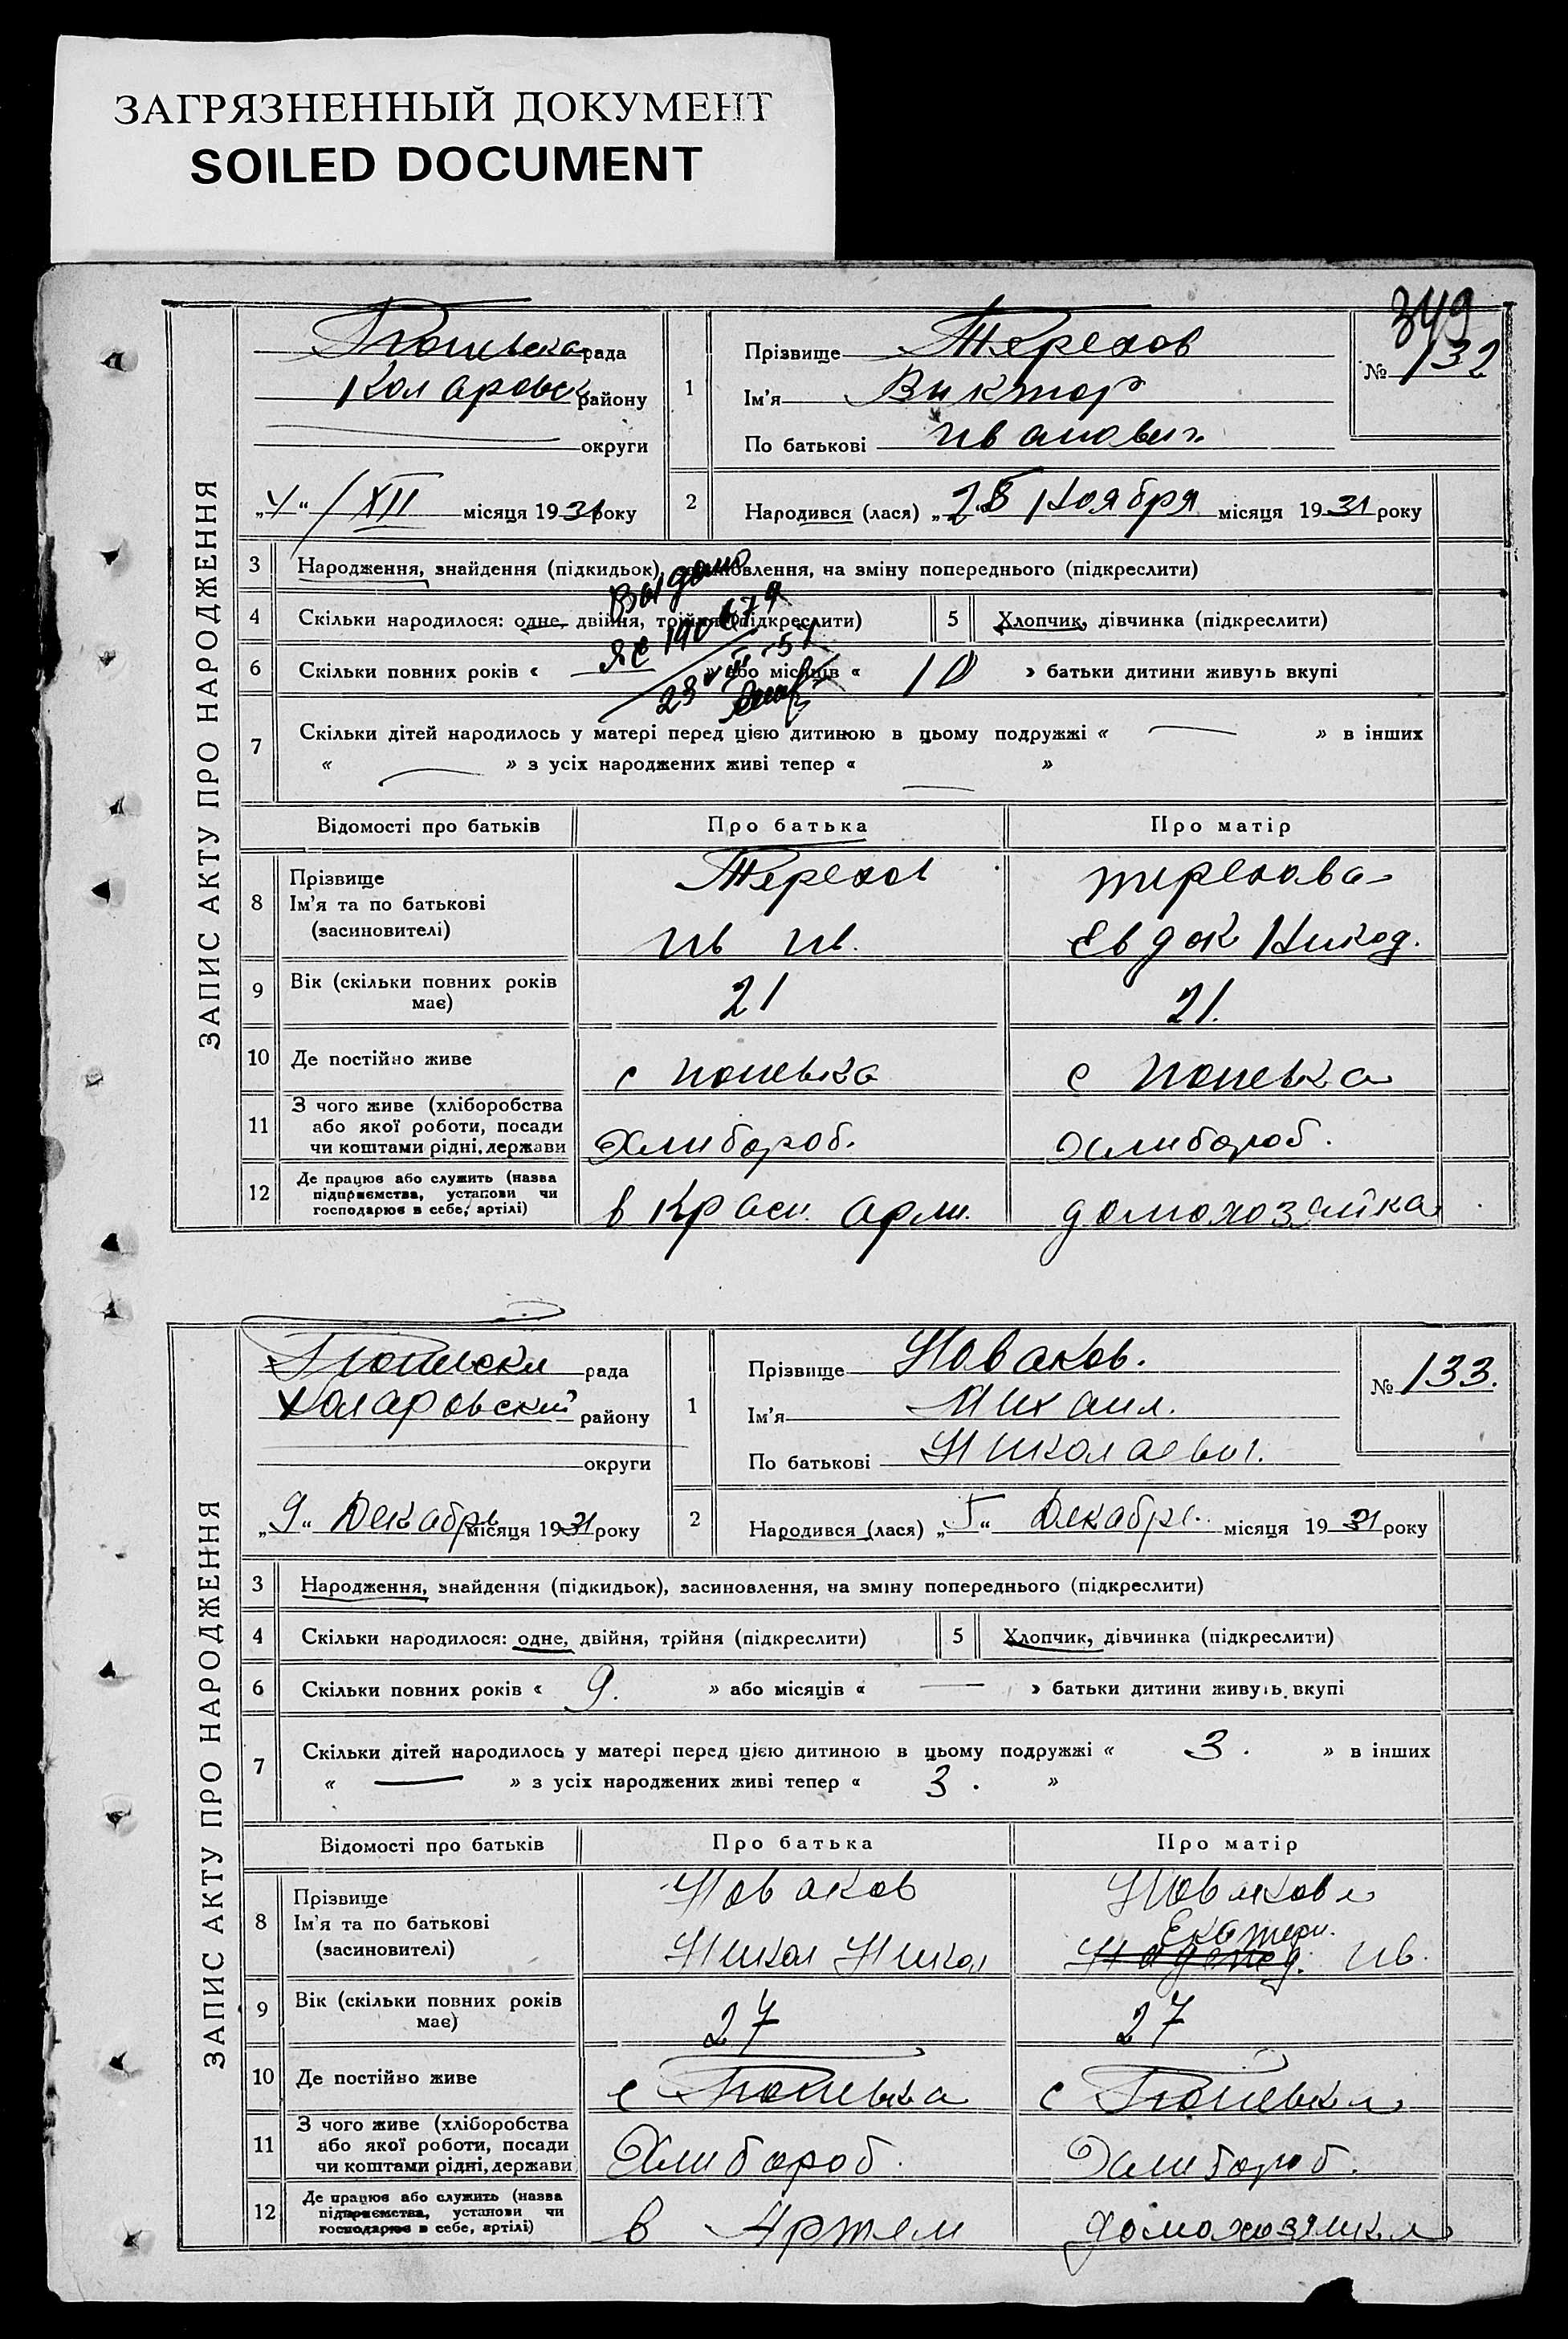 ЗАГРЯЗНЕННЫЙ ДОКУМЕНТ
SOILED DOCUMENT
349
ЗАПИС АКТУ ПРО НАРОДЖЕННЯ
Попевска рада
Коларовск району
округи
„4“ XII місяця 1931 року
1
Прізвище Терехов
Ім'я Виктор
По батькові Иванович
№ 132
2
Народився (лася) „28“ Ноября місяця 1931 року
3 Народження, знайдення (підкидьок), засиновлення, на зміну попереднього (підкреслити)
Выдано
4 Скільки народилося: одне, двійня, трійня (підкреслити)
5 Хлопчик, дівчинка (підкреслити)
6 Скільки повних років « » або місяців « 10 » батьки дитини живуть вкупі
23
7 Скільки дітей народилось у матері перед цією дитиною в цьому подружжі « — » в інших
« — » з усіх народжених живі тепер « — »
Відомості про батьків Про батька Про матір
8 Прізвище
Ім'я та по батькові
(засиновителі)
Терехов
Ив Ив.
Терехова
Евдок Никод.
9 Вік (скільки повних років
має)
21
21.
10 Де постійно живе
с Попевка
с Попевка
11 З чого живе (хліборобства
або якої роботи, посади
чи коштами рідні, держави
Хлибороб.
Хлибороб.
12 Де працює або служить (назва
підприємства, установи чи
господарює в себе, артілі)
в Красн. арми.
домохозайка
ЗАПИС АКТУ ПРО НАРОДЖЕННЯ
рада
Коларовский району
округи
„9“ Декабрь місяця 1931 року
1
Прізвище Новаков.
Ім'я Михаил.
По батькові Николаевич.
№ 133.
2
Народився (лася) „5“ Декабря. місяця 1931 року
3 Народження, знайдення (підкидьок), засиновлення, на зміну попереднього (підкреслити)
4 Скільки народилося: одне, двійня, трійня (підкреслити)
5 Хлопчик, дівчинка (підкреслити)
6 Скільки повних років « 9. » або місяців « — » батьки дитини живуть вкупі
7 Скільки дітей народилось у матері перед цією дитиною в цьому подружжі « 3. » в інших
« — » з усіх народжених живі тепер « 3. »
Відомості про батьків Про батька Про матір
8 Прізвище
Ім'я та по батькові
(засиновителі)
Новаков
Никол Никол
Новакова
Екатери.
Ив.
9 Вік (скільки повних років
має)
27
27
10 Де постійно живе
с Попевка
с Попевка
11 З чого живе (хліборобства
або якої роботи, посади
чи коштами рідні, держави
Хлибороб.
Хлибороб.
12 Де працює або служить (назва
підприємства, установи чи
господарює в себе, артілі)
в Артели
домохозяика